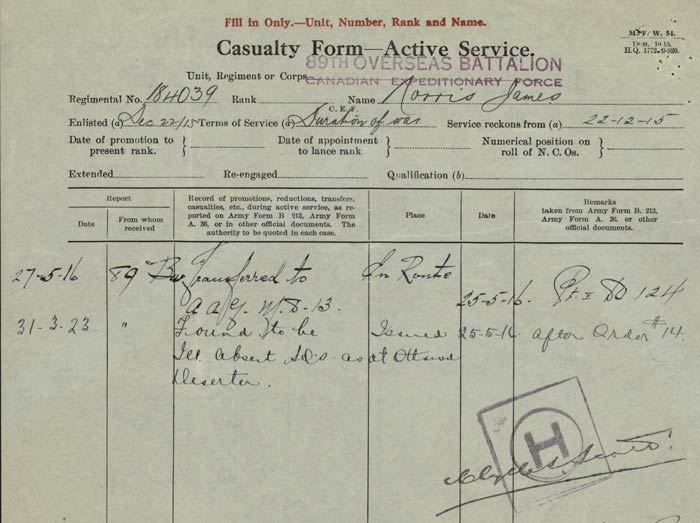 Fill in Only.—Unit, Number, Rank and Name.
M.F. W. 54.
H.Q. 1772-
Casualty Form—Active Service.
89TH OVERSEAS BATTALION
Unit, Regiment or Corps CANADIAN EXPEDITIONARY FORCE
Regimental No. 184039 Rank Name Norris James
C. E. F.
Enlisted (a) Dec 22/15 Terms of Service (a) Duration of war Service reckons from (a) 22-12-15
Date of promotion to present rank. } Date of appointment to lance rank } Numerical position on roll of N. C. Os. }
Extended Re-engaged Qualification (b)
Report
Date
From whom received
Record of promotions, reductions, transfers, casualties, etc., during active service, as reported on Army Form B 213, Army Form A. 36, or in other official documents. The authority to be quoted in each case.
Place
Date
Remarks taken from Army Form B. 213, Army Form A. 36, or other official documents.
27-5-16 89 Bn Transferred to In Route
A A G. M.D-13. 25-5-16. Pt. II DO 124
31-3-23 " Found to be Issued 25-5-16 after Order #14.
Ill. Absent S.O.S as at Ottawa
Deserter.
H